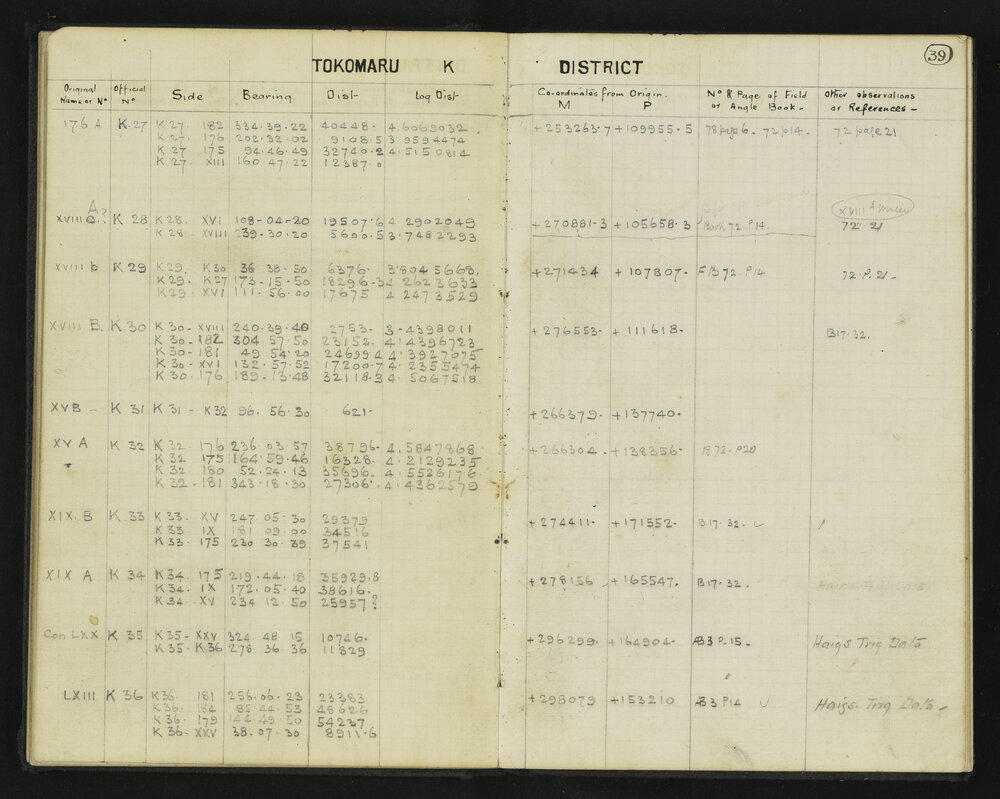 39
TOKOMARU K DISTRICT
Original Name or No Official No Side Bearing Dist- Log Dist Co-ordinates from Origin. M P No & Page of Field or Angle Book- Other observations or References-
176 A K.27 K 27. 182 334.39.22 40448- 4.6069032 +253263.7 +109955.5 78 page 6. 72 p14. 72 page 21
K 27. 176 202.32.02 9108.5 3 9594474
K 27 175 94.46.49 32740.2 4.5150814
K 27. XIII 160.47.22 12387.0
A
XVIII C.? K 28 K 28. XVI 108-04-20 19507.6 4 2902049 +270881-3 +105658.3 Book 72. P.14. 72. 21
K 28- XVIII 239.30.20 5600.5 3.7482293
XVIII b K 29 K29. K30 36 38.50 6376. 3.8045668. +271434 +107807. FB 72. P.14 72. P. 21-
K29. K27 173-15-50 18296.3 4 2623633
K29- XVI 111-56-00 17675 4 2473529
XVIII B. K.30 K 30- XVIII 240.39.40 2753- 3-4398011 +276553- +111618- B17.32.
K 30-182 304 57.50 23152. 4.4396723
K 30-181 49 54.20 24699 4 4.3927075
K 30-XVI 132.57.52 17200.7 4.2355474
K 30.176 189.13.48 32118.3 4.5067518
XVB - K 31 K 31- K32 96. 56.30 621- +266379- +137740-
XV A K 32 K 32- 176 236.03.57 38796- 4.5847868. +266304. +138356- B72.P20
K 32 175 164.59.46 16328- 4.2129235
K 32 180 52.24.13 35696. 4.5526176
K 32-181 343.18.30 27306. 4.4362579
XIX.B K.33 K 33. XV 247 05.30 29379 +274411- +171552- B17.32.
K 33. IX 181 09.00 34516
K 33. 175 230 30.39 37541
XIX A K 34 K34. 175 219.44.18 35929.8 +278156 +165547. B17.32.
K34. IX 172.05.40 38616.
K34- XV 234 12.50 25957?
Con LXX K 35 K 35- XXV 324 48 15 10746. +296299. +164904- AB3 P.15. Haigs Trig Data
K 35. K36 278 36 36 11829
LXIII K 36 K36. 181 256.06.23 23383 +298079 +153210 AB3 P14 Haigs. Trig Data-
K36. 184 85.44.53 48626
K36- 179 144 49 50 54237
K 36-XXV 38.07.30 8911.6